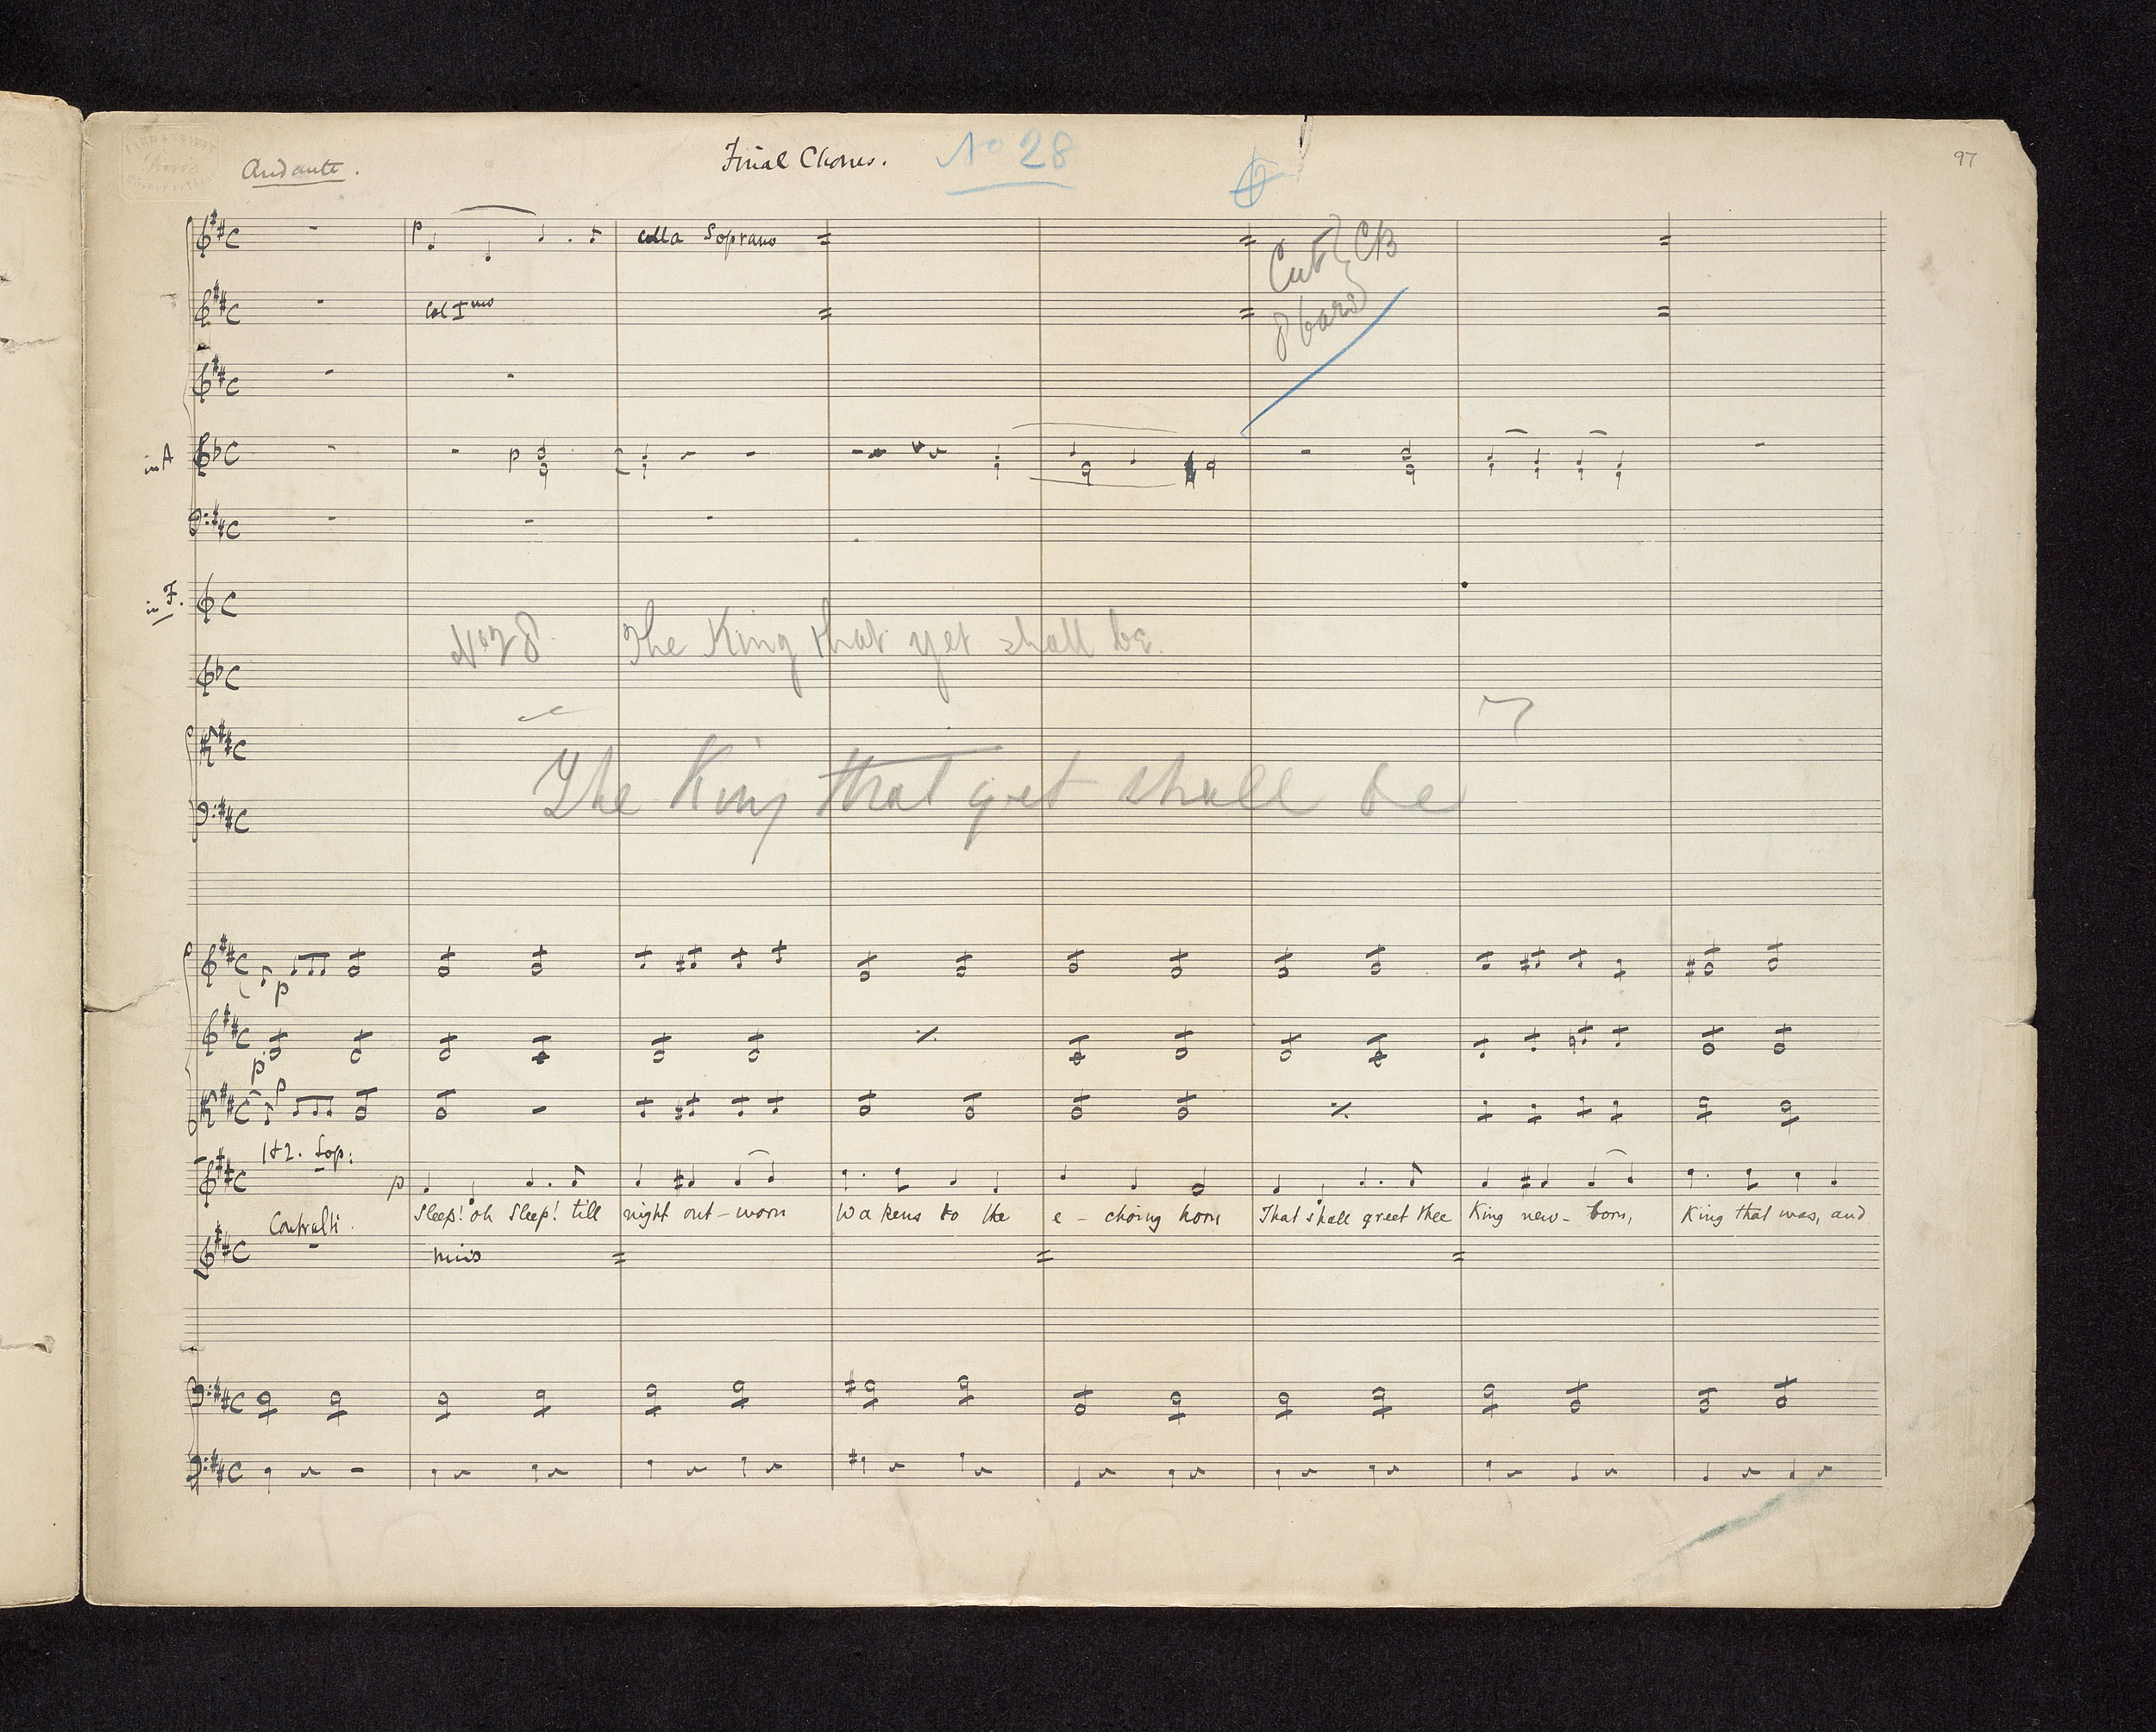 Andante.
Final Chorus.
No 28
97
p
colla Soprano
Cut
8 bars
CB
Col Imo
in A
p
in F.
No 28. The King that yet shall be.
The King that yet shall be
p
p
p
1 & 2. Sop:
p
Sleep! oh Sleep! till night out-worn Wakens to the e-choing horn That shall greet thee King new-born, King that was, and
Contralti.
unis